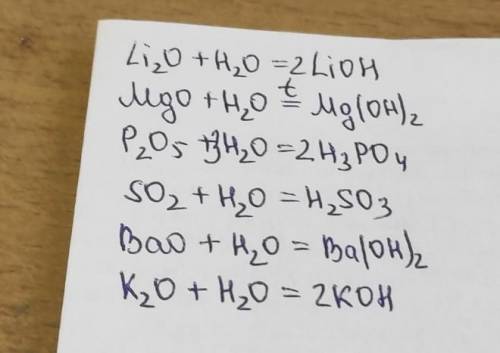 Li₂O + H₂O = 2LiOH
MgO + H₂O =ᵗ Mg(OH)₂
P₂O₅ + 3H₂O = 2H₃PO₄
SO₂ + H₂O = H₂SO₃
BaO + H₂O = Ba(OH)₂
K₂O + H₂O = 2KOH